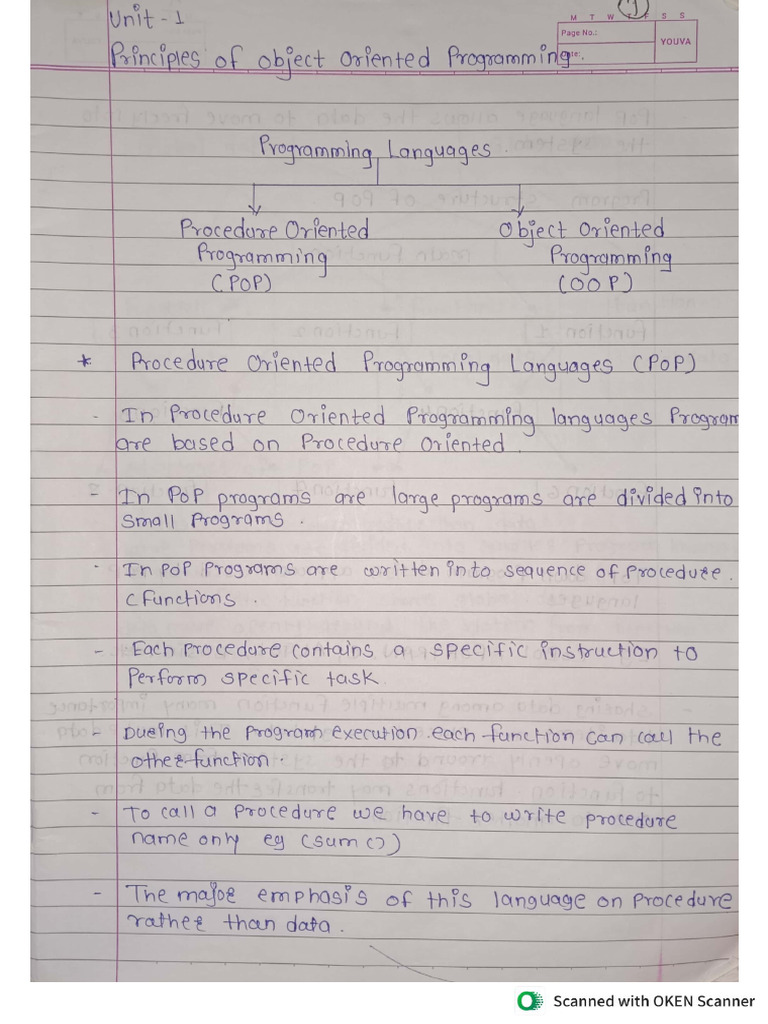 Unit - 1
M T W T F S S
Page No.:
YOUVA
Principles of Object Oriented Programming.
Programming Languages.
Procedure Oriented Object Oriented
Programming Programming
(POP) (OOP)
* Procedure Oriented Programming Languages (POP)
- In Procedure Oriented Programming languages Program
are based on Procedure Oriented.
- In POP programs are large programs are divided into
Small Programs.
- In POP Programs are written into sequence of Procedure.
(Functions.
- Each Procedure contains a specific instruction to
Perform specific task.
- Dueing the Program execution each function can call the
other function.
- To call a Procedure we have to write procedure
name only eg (sum())
- The major emphasis of this language on Procedure
rather than data.
Scanned with OKEN Scanner